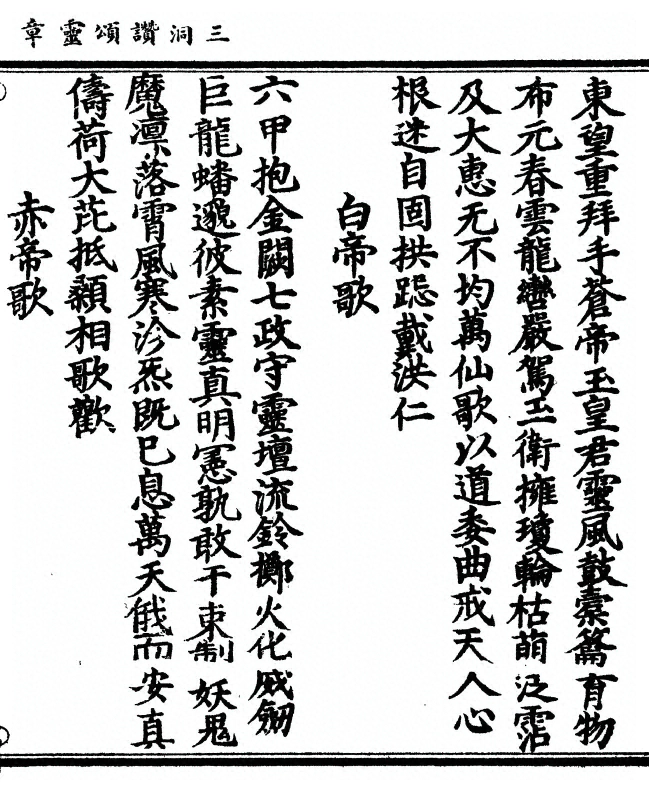 三洞讚頌靈章
東望重拜手蒼帝玉皇君靈風鼓橐籥育物
布元春雲龍轡嚴駕玉衛擁瓊輪枯萌泛霑
及大惠无不均萬仙歌以道委曲戒天人心
根迷自固拱跽戴洪仁
白帝歌
六甲抱金闕七政守靈壇流鈴擲火化威劒
巨龍蟠邈彼素靈真明憲孰敢干束制妖鬼
魔凛落霄風寒沴炁既已息萬天俄而安真
儔荷大芘抵顙相歌歡
赤帝歌